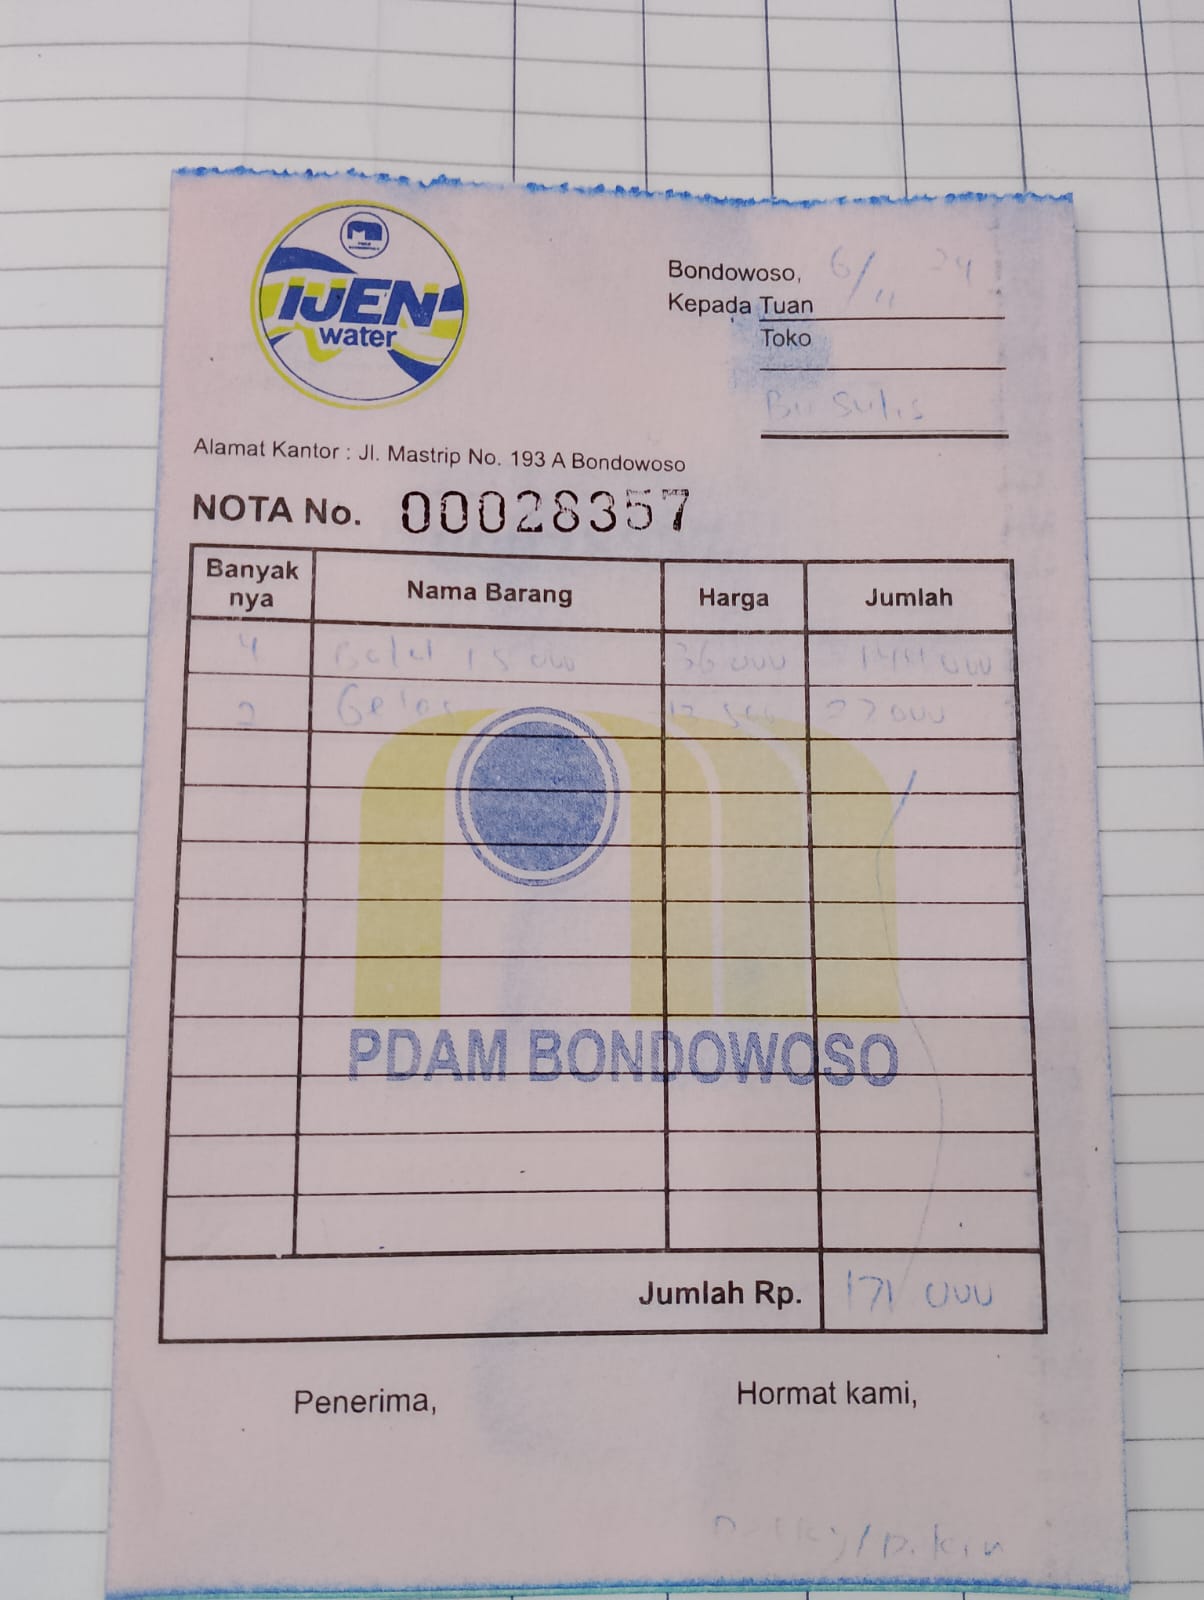 IJEN
water
Bondowoso, 6/11 24
Kepada Tuan
Toko
Bu Sulis
Alamat Kantor : Jl. Mastrip No. 193 A Bondowoso
NOTA No. 00028357
Banyak nya Nama Barang Harga Jumlah
4 1500 36 000 144 000
2 Gelas 13 500 27 000
PDAM BONDOWOSO
Jumlah Rp. 171 000
Penerima, Hormat kami,